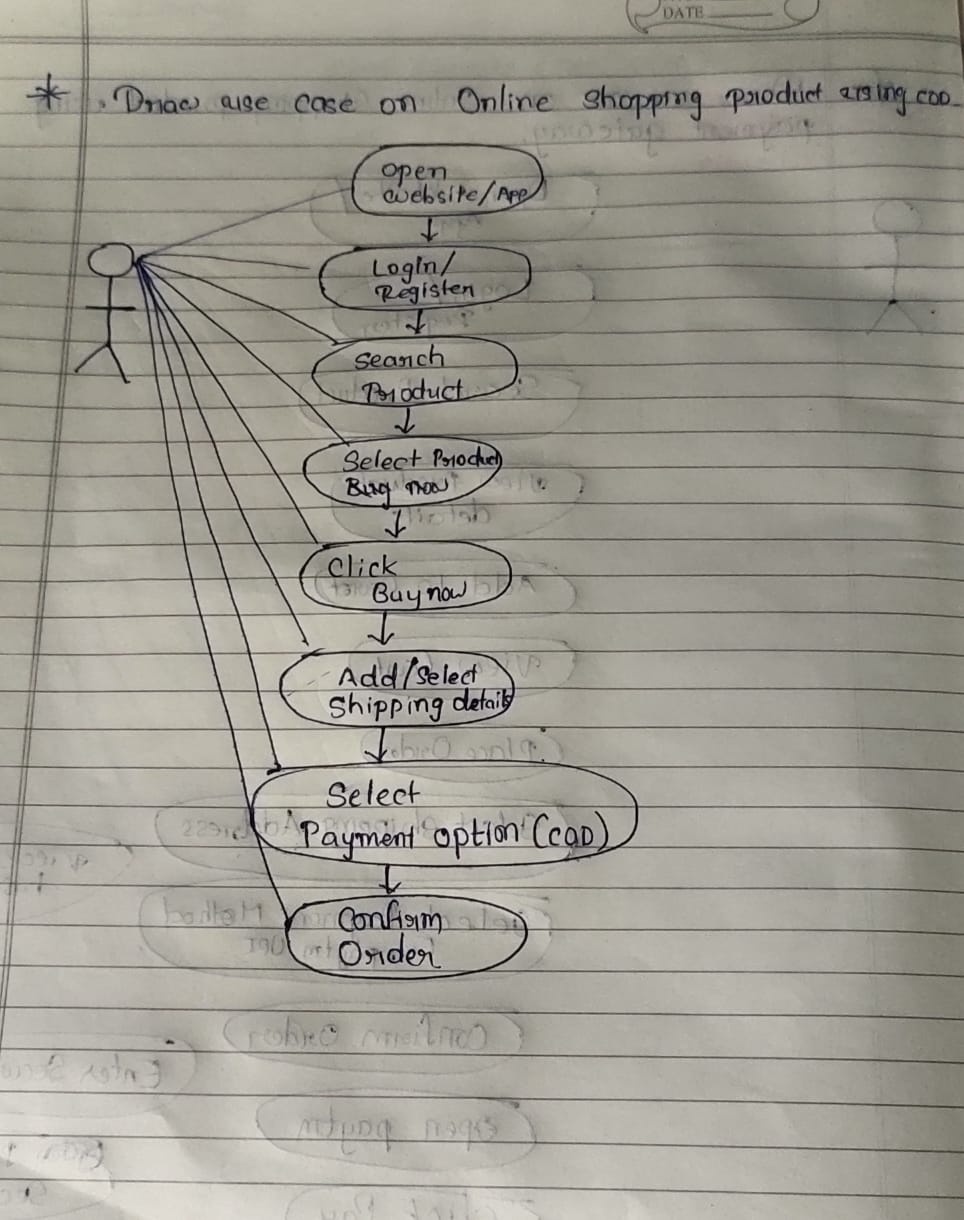 DATE
* Draw use case on Online shopping product using COD
open
website/App
Login/
Register
Search
Product
Select Product
Buy now
Click
Buy now
Add/Select
Shipping details
Select
Payment option (COD)
Confirm
Order